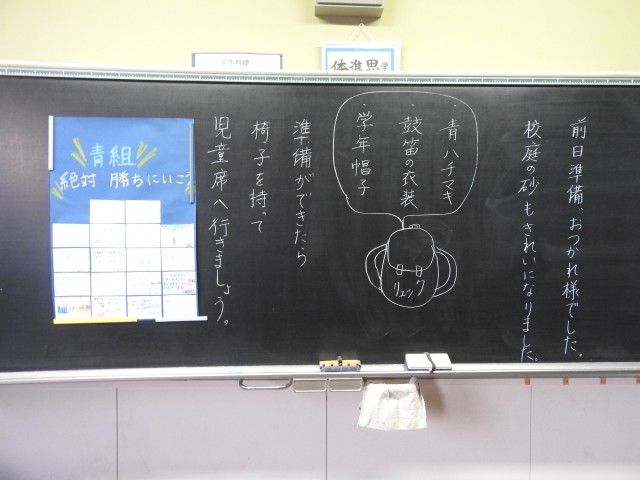 前日準備、おつかれ様でした。
校庭の砂もきれいになりました。
・青ハチマキ
・鼓笛の衣装
・学年帽子
リュック
準備ができたら
椅子を持って
児童席へ行きましょう。
青組
絶対 勝ちにいこう
体進思学